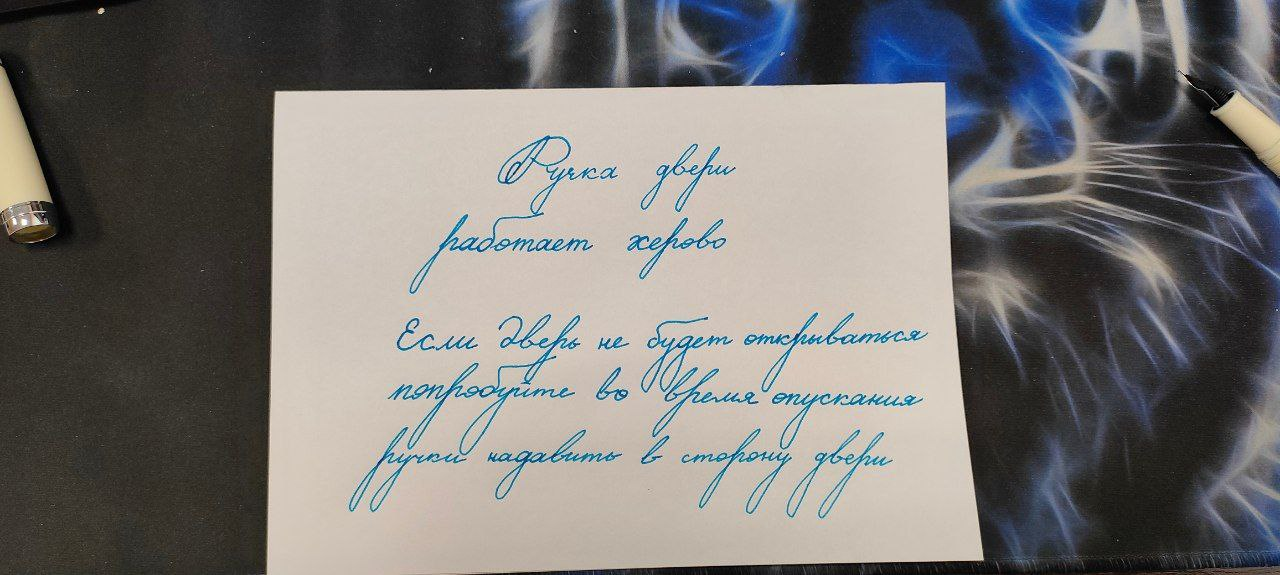 Ручка двери
работает херово
Если дверь не будет открываться
попробуйте во время опускания
ручки надавить в сторону двери